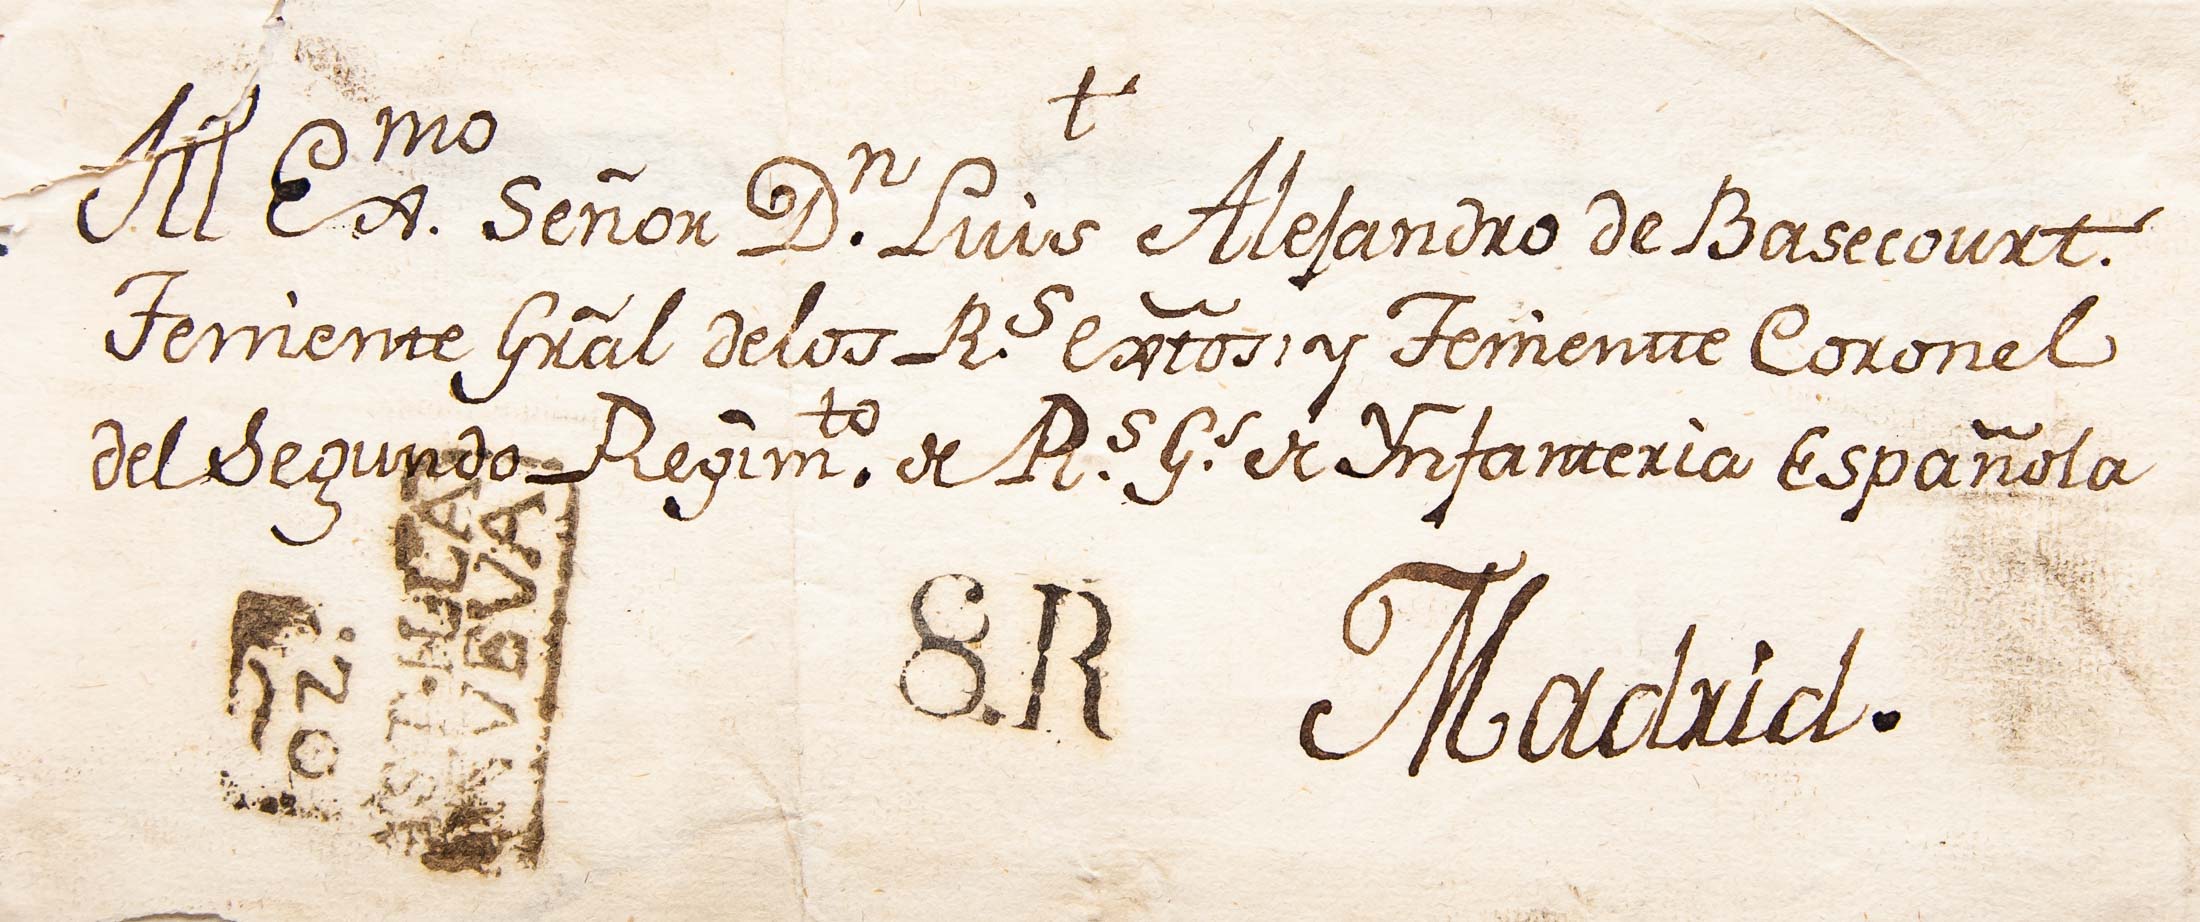 †
All Exmo. Señor Dn. Luis Alejandro de Basecourt.
Teniente Grãl delos Rs. Exr̃tos, y Teniente Coronel
del Segundo Regimto. de Rs. Gs. de Ynfanteria Española
8.R
Madrid.
OZ.
ST.LLA
NVEVA